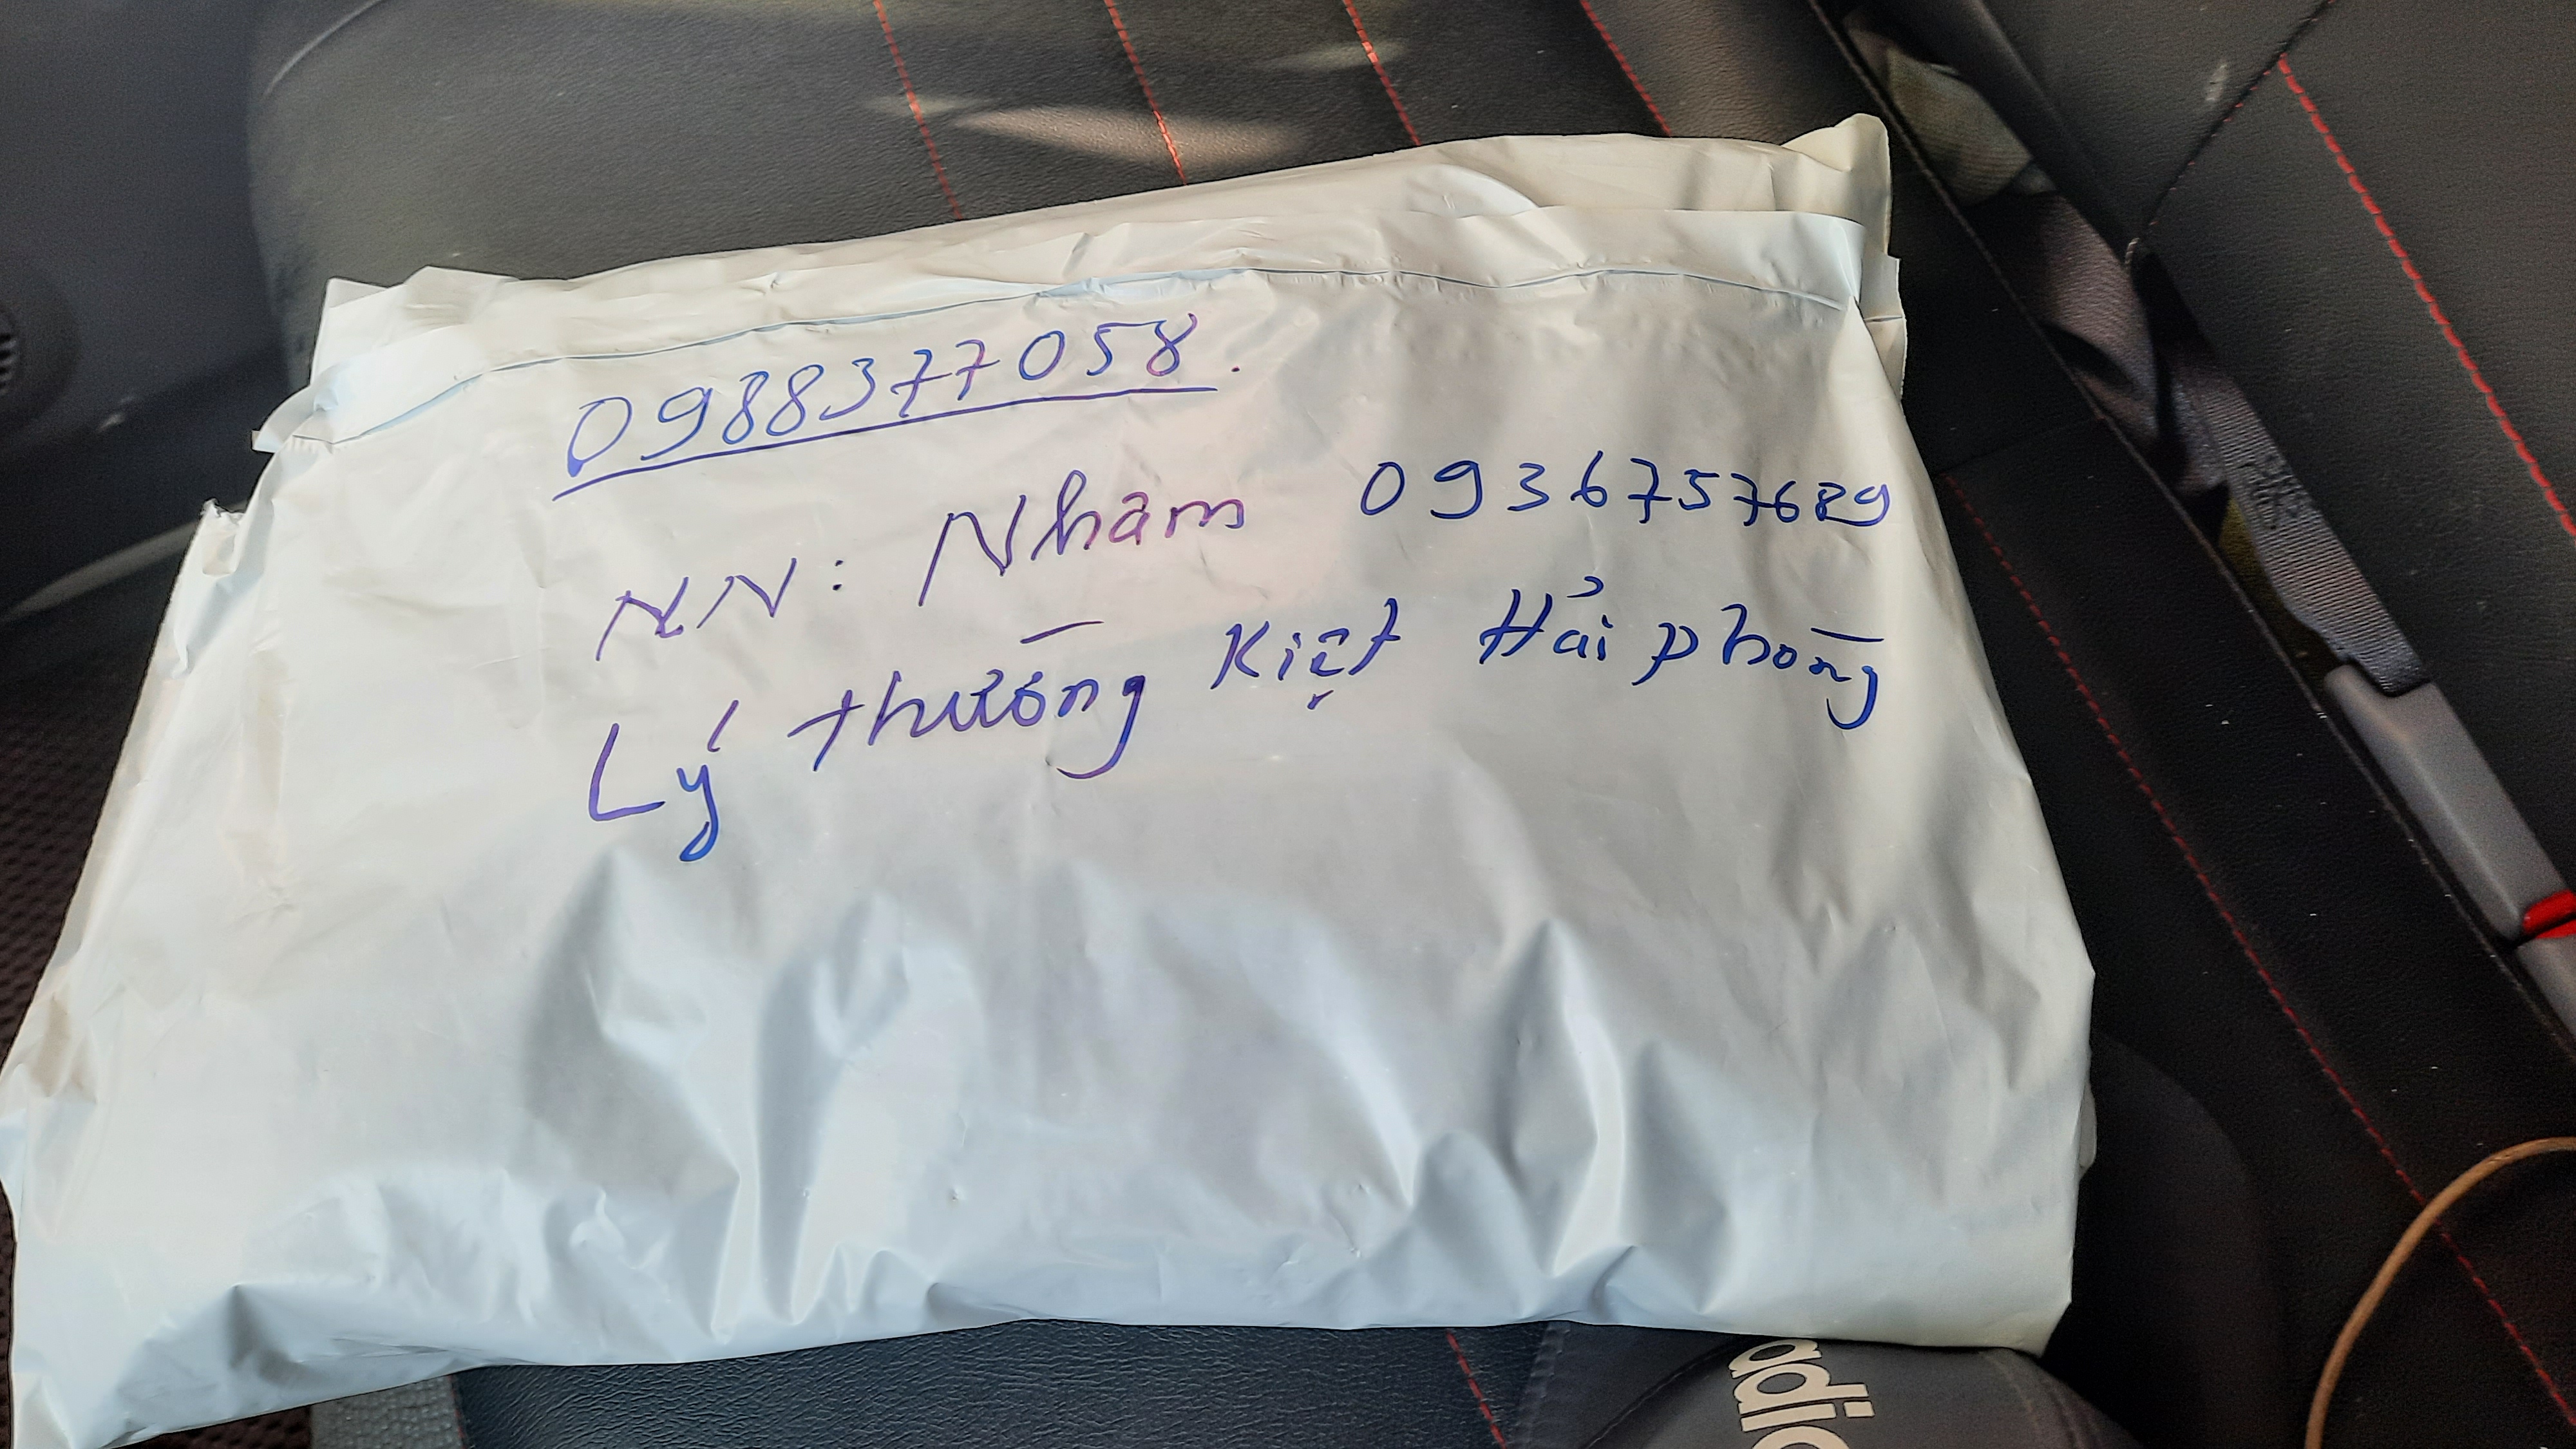 0988377058.
NN: Nhâm 0936757689
Lý Thường Kiệt Hải phòng
adid